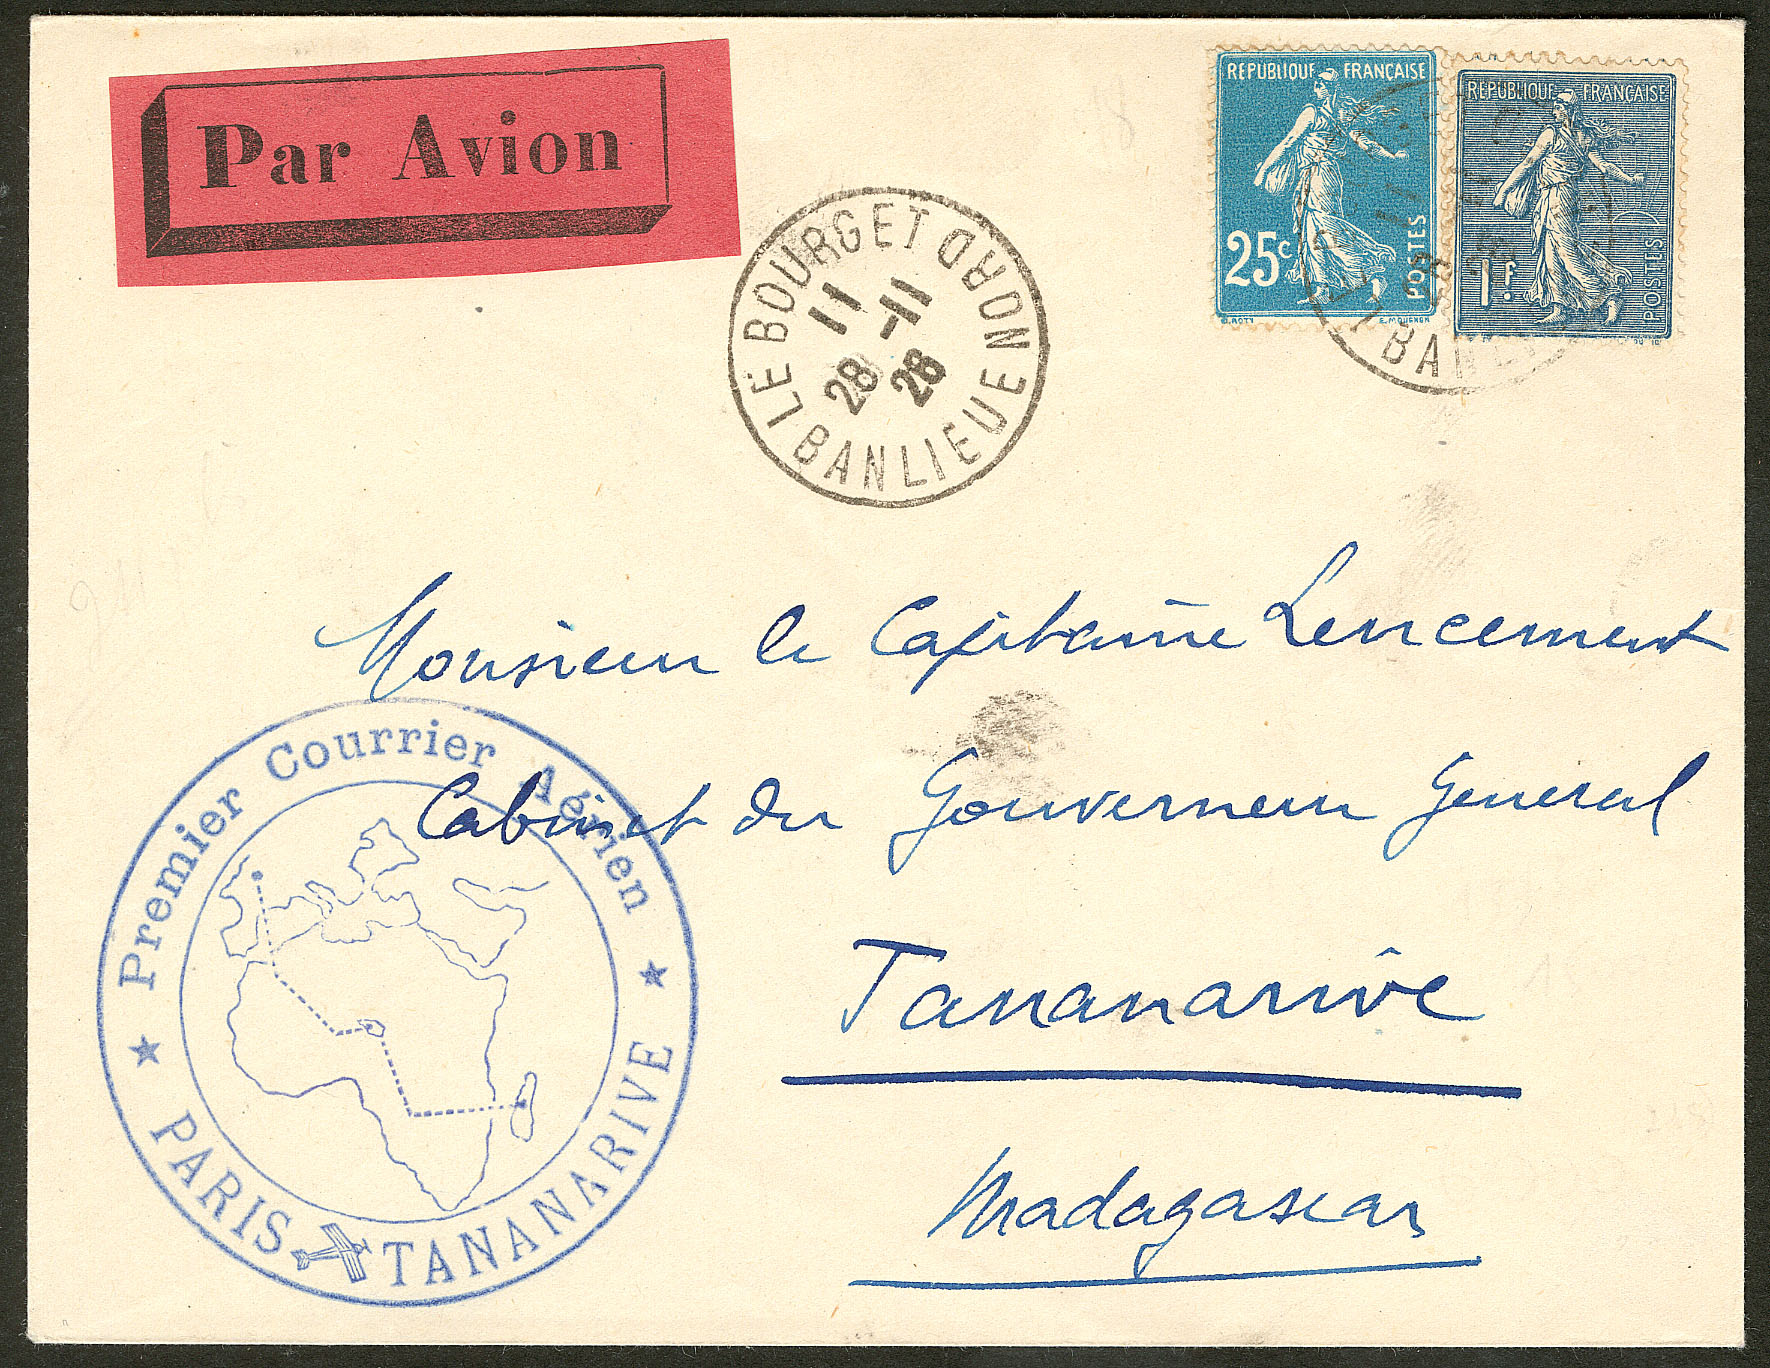 Par Avion
REPUBLIQUE FRANÇAISE
25c
POSTES
O. ROTY
E. MOUCHON
REPUBLIQUE FRANÇAISE
1f.
POSTES
LE BOURGET NORD
11 -11
28 28
BANLIEUE
BANLIEUE
Monsieur le Capitaine Lencement
Cabinet du Gouverneur Général
Tananarive
Madagascar
Premier Courrier Aérien
PARIS TANANARIVE